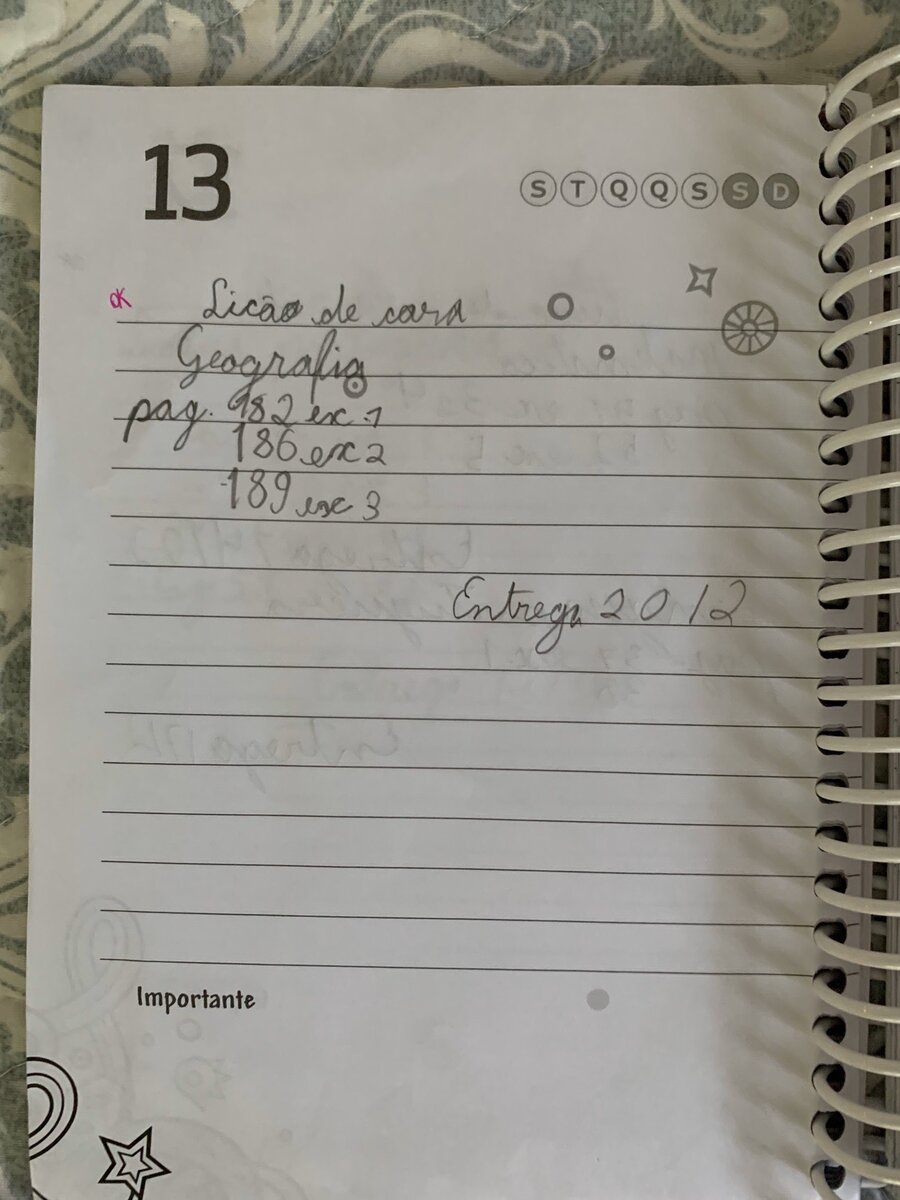 13
S T Q Q S S D
OK
Licão de casa
Geografia
pag. 182 ex 1
186 ex 2
189 ex 3
Entrega 20/2
Importante